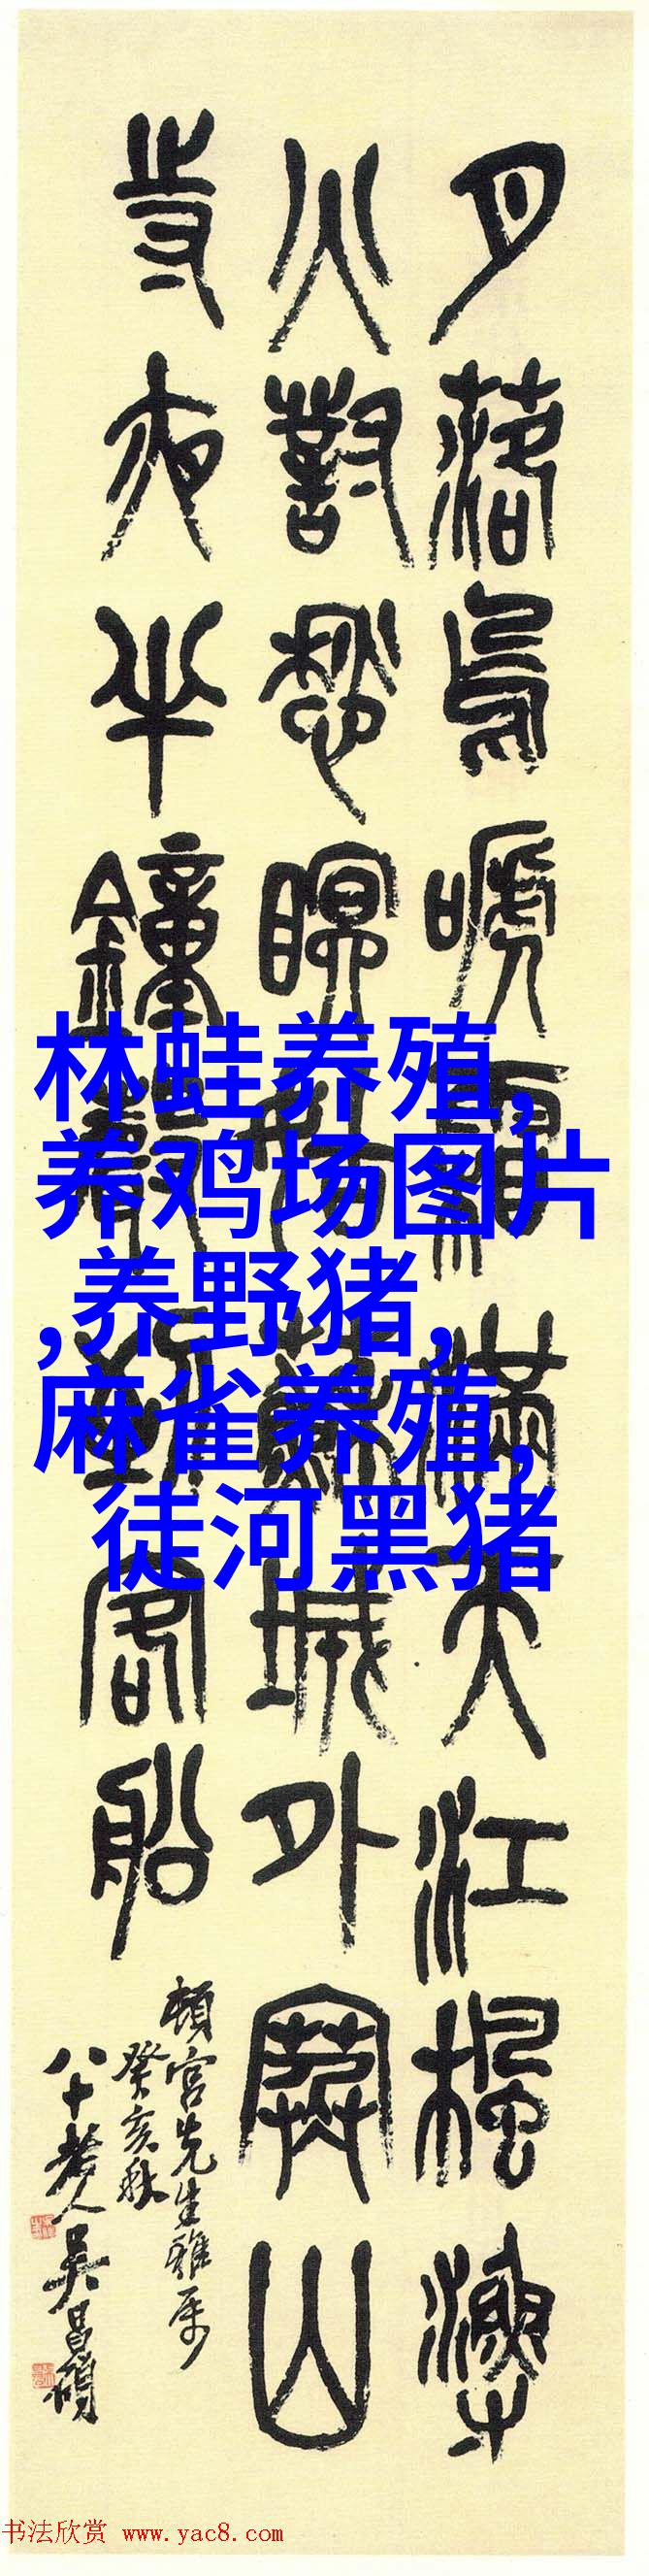 月落烏嗁霜滿天江楓漁
火對愁瞑姑蘇城外寒山
寺夜半鐘聲到客船
頓宮先生雅屬
癸亥秋
八十老人吳昌碩
林蛙养殖,
养鸡场图片
,养野猪,
麻雀养殖,
徒河黑猪
书法欣赏 www.yac8.com